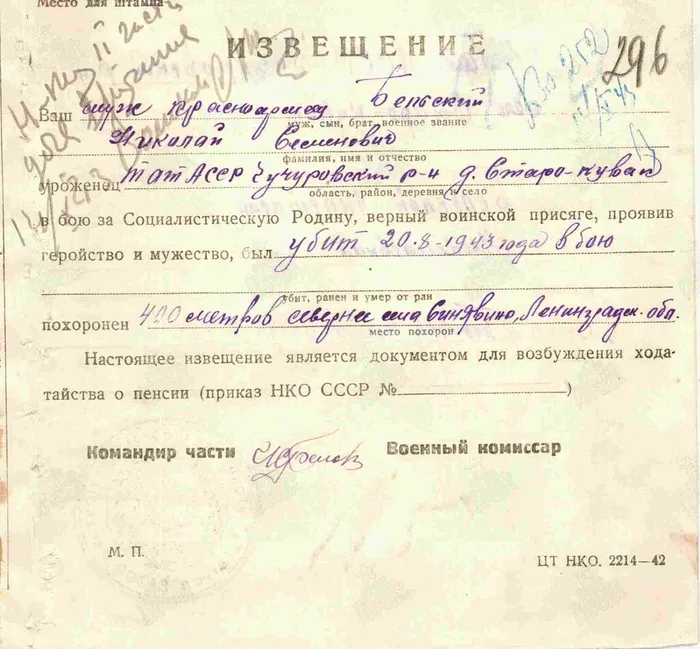 Место для штампа
ИЗВЕЩЕНИЕ
296
Ваш муж красноармеец Бельский
муж, сын, брат, военное звание
Николай Семенович
фамилия, имя и отчество
уроженец ТатАССР р-н д. Старо-Кувак
область, район, деревня и село
в бою за Социалистическую Родину, верный воинской присяге, проявив
геройство и мужество, был убит 20.8-1943 года в бою
убит, ранен и умер от ран
похоронен 400 метров севернее села Синявино, Ленинградск. обл.
место похорон
Настоящее извещение является документом для возбуждения хода-
тайства о пенсии (приказ НКО СССР №)
Командир части Военный комиссар
М. П.
ЦТ НКО. 2214—42